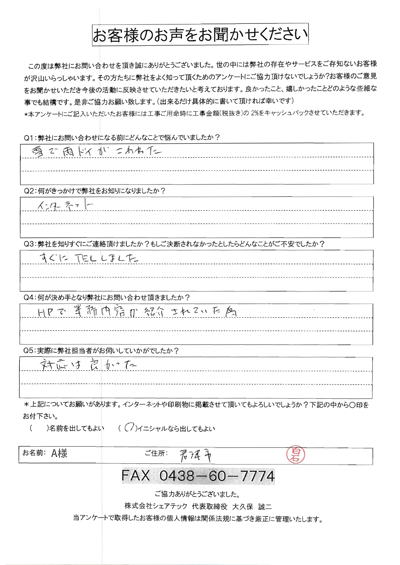 お客様のお声をお聞かせください
この度は弊社にお問い合わせを頂き誠にありがとうございました。世の中には弊社の存在やサービスをご存知ないお客様
が沢山いらっしゃいます。その方たちに弊社をよく知って頂くためのアンケートにご協力頂けないでしょうか?お客様のご意見
をお聞かせいただき今後の活動に反映させていただきたいと考えております。良かったこと、嬉しかったことどのような些細な
事でも結構です。是非ご協力お願い致します。(出来るだけ具体的に書いて頂ければ幸いです)
*本アンケートにご記入いただいたお客様には工事ご用命時に工事金額(税抜き)の 2%をキャッシュバックさせていただきます。
Q1:弊社にお問い合わせになる前にどんなことで悩んでいましたか?
雪で雨ドイがこわれた
Q2:何がきっかけで弊社をお知りになりましたか?
インターネット
Q3:弊社を知りすぐにご連絡頂けましたか?もしご決断されなかったとしたらどんなことがご不安でしたか?
すぐに TELしました
Q4:何が決め手となり弊社にお問い合わせ頂きましたか?
HPで業務内容が紹介されていた為
Q5:実際に弊社担当者がお伺いしていかがでしたか?
対応は良かった
*上記についてお願いがあります。インターネットや印刷物に掲載させて頂いてもよろしいでしょうか?下記の中から○印を
お付下さい。
( )名前を出してもよい (○)イニシャルなら出してもよい
お名前: A様 ご住所: 君津市
FAX 0438-60-7774
ご協力ありがとうございました。
株式会社シェアテック 代表取締役 大久保 誠二
当アンケートで取得したお客様の個人情報は関係法規に基づき厳正に管理いたします。